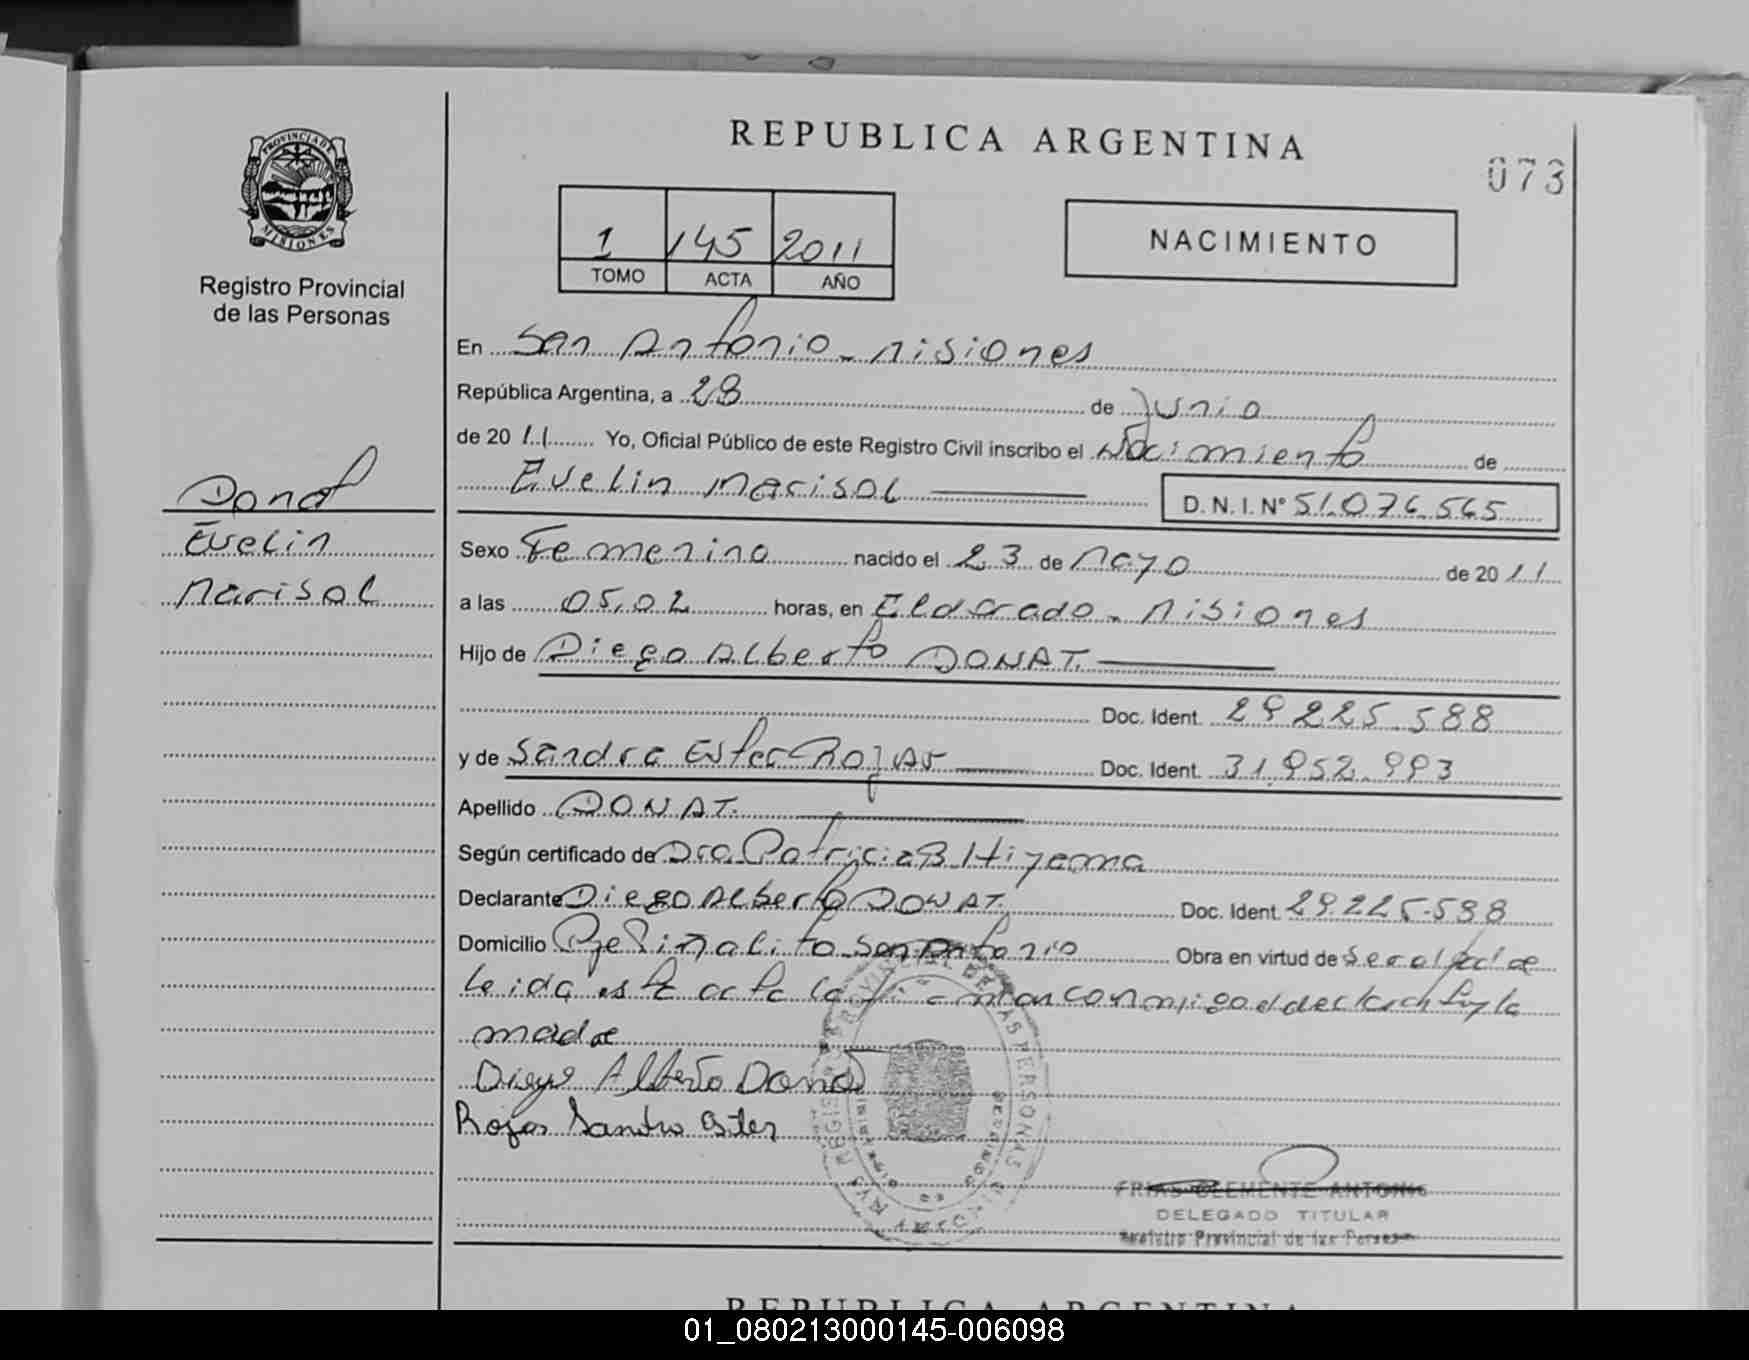 REPUBLICA ARGENTINA
073
PROVINCIA DE
MISIONES
Registro Provincial
de las Personas
1 145 2011
TOMO ACTA AÑO
NACIMIENTO
En San Antonio - Misiones
República Argentina, a 28 de Junio
de 2011 Yo, Oficial Público de este Registro Civil inscribo el Nacimiento de
Evelin Marisol D.N.I. Nº 51.076.565
Donat
Evelin
Marisol
Sexo Femenino nacido el 23 de Mayo de 2011
a las 05,02 horas, en Eldorado - Misiones
Hijo de Diego Alberto DONAT.
Doc. Ident. 29.225.588
y de Sandra Ester Rojas Doc. Ident. 31.952.993
Apellido DONAT.
Según certificado de Dra. Patricia B.
Declarante Diego Alberto DONAT. Doc. Ident. 29.225.588
Domicilio San Antonio Obra en virtud de
Leida esta acta la conmigo el declarante y la
madre
Diego Alberto Donat
Rojas Sandra Ester
REGISTRO PROVINCIAL DE LAS PERSONAS
FRIAS CLEMENTE ANTONIO
DELEGADO TITULAR
Registro Provincial de las Personas
REPUBLICA ARGENTINA
01_080213000145-006098